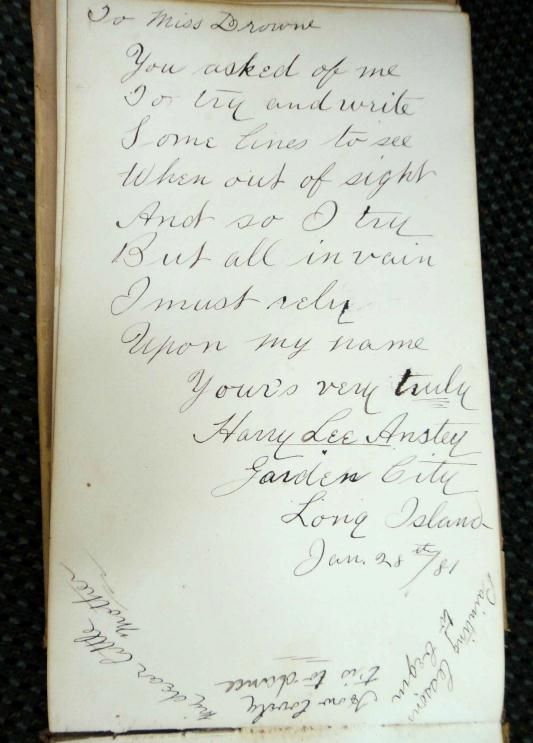 To Miss Drowne
You asked of me
To try and write
Some lines to see
When out of sight
And so I try
But all in vain
I must rely
Upon my name
Your's very truly
Harry Lee Anstey
Garden City
Long Island
Jan. 28th/81
My dear little
Mother
How lovely
tis to dance
Painting lessons
to begin